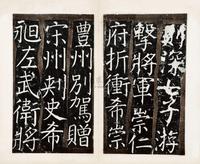 深七子游
擊將軍崇仁
府折衝希崇
豊州別駕贈
宋州刾史希
㢠左武衛將